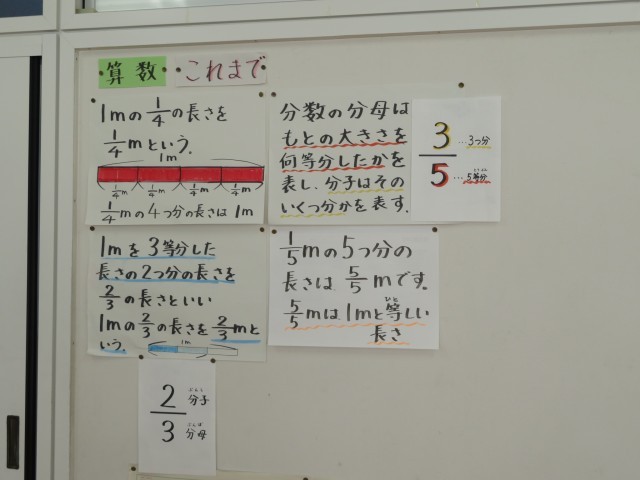 算数
これまで
1mの1/4の長さを
1/4mという。
1m
1/4m 1/4m 1/4m 1/4m
1/4mの4つ分の長さは1m
分数の分母は
もとの大きさを
何等分したかを
表し、分子はその
いくつ分かを表す。
3 …3つ分
5 …5等分
1mを3等分した
長さの2つ分の長さを
2/3の長さといい
1mの2/3の長さを2/3mと
いう。
1m
1/5mの5つ分の
長さは5/5mです。
ひと
5/5mは1mと等しい
長さ
ぶんし
2 分子
ぶんぼ
3 分母